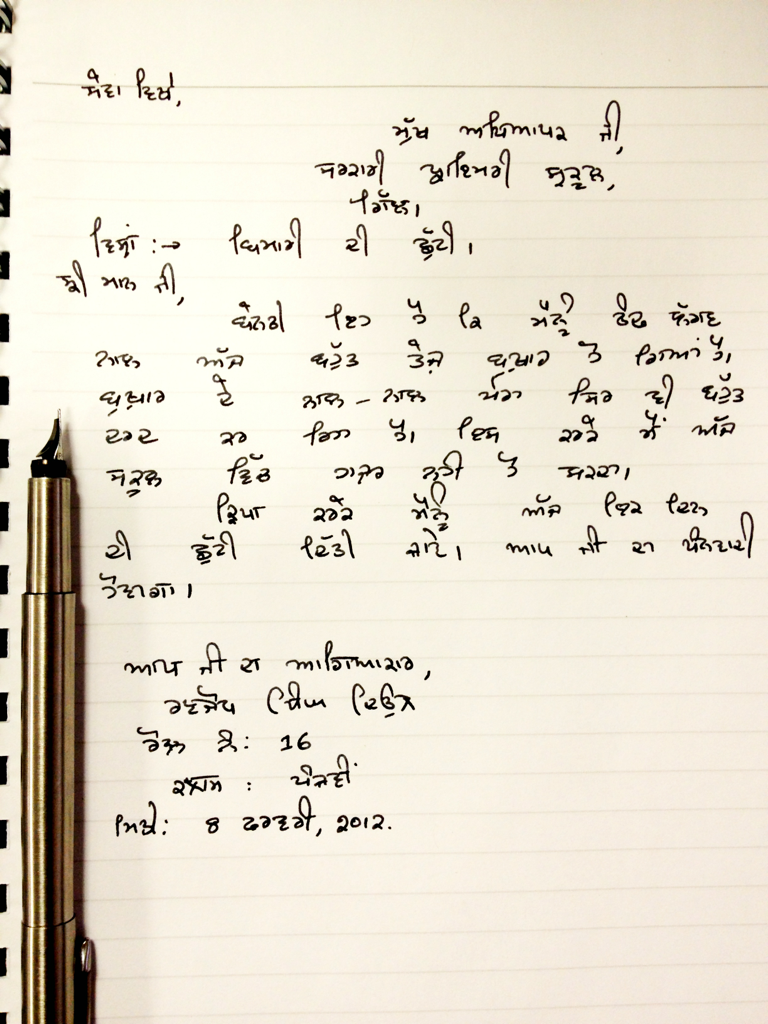 ਸੇਵਾ ਵਿਖੇ,
ਮੁੱਖ ਅਧਿਆਪਕ ਜੀ,
ਸਰਕਾਰੀ ਪ੍ਰਾਇਮਰੀ ਸਕੂਲ,
ਗਿੱਲ।
ਵਿਸ਼ਾ :→ ਬਿਮਾਰੀ ਦੀ ਛੁੱਟੀ।
ਸ਼੍ਰੀ ਮਾਨ ਜੀ,
ਬੇਨਤੀ ਇਹ ਹੈ ਕਿ ਮੈਨੂੰ ਠੰਢ ਲੱਗਣ
ਨਾਲ ਅੱਜ ਬਹੁੱਤ ਤੇਜ਼ ਬੁਖ਼ਾਰ ਹੋ ਗਿਆ ਹੈ।
ਬੁਖ਼ਾਰ ਦੇ ਨਾਲ - ਨਾਲ ਮੇਰਾ ਸਿਰ ਵੀ ਬਹੁੱਤ
ਦਰਦ ਕਰ ਰਿਹਾ ਹੈ। ਇਸ ਕਰਕੇ ਮੈਂ ਅੱਜ
ਸਕੂਲ ਵਿੱਚ ਹਾਜ਼ਰ ਨਹੀ ਹੋ ਸਕਦਾ।
ਕ੍ਰਿਪਾ ਕਰਕੇ ਮੈਨੂੰ ਅੱਜ ਇਕ ਦਿਨ
ਦੀ ਛੁੱਟੀ ਦਿੱਤੀ ਜਾਵੇ। ਆਪ ਜੀ ਦਾ ਧੰਨਵਾਦੀ
ਹੋਵਾਗਾ।
ਆਪ ਜੀ ਦਾ ਆਗਿਆਕਾਰ,
ਰਣਜੋਧ ਸਿੰਘ ਦਿਉਲ
ਰੋਲ ਨੰ: 16
ਕਲਾਸ : ਪੰਜਵੀਂ
ਮਿਤੀ: 8 ਫਰਵਰੀ, ੨੦੧੨.